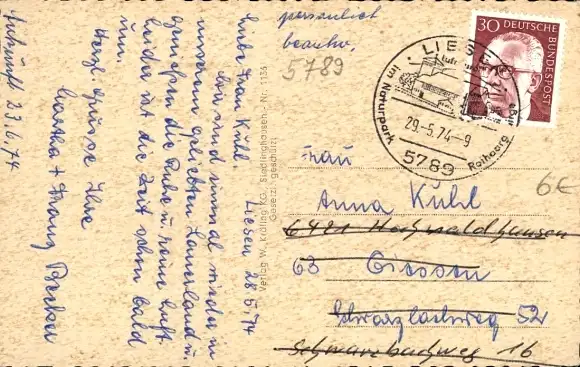 Liesen 28.5.74
Liebe Frau Kühl
Wir sind einmal wieder in
unserem geliebten Sauerland u.
genießen die Ruhe u. reine Luft.
Leider ist die Zeit schon bald
um.
Herzl. Grüsse Ihre
Martha + Franz
23.6.74
Verlag W. Kräling KG, Siedlinghausen, Nr. 1136
Gesetzl. geschützt
persönlich
5789
30 DEUTSCHE BUNDESPOST
LIESEN
29.-5.74-9
5789
Im Naturpark Rothaarg.
6€
Frau
Anna Kühl
63 Giessen
52
Schwarzbachweg 16